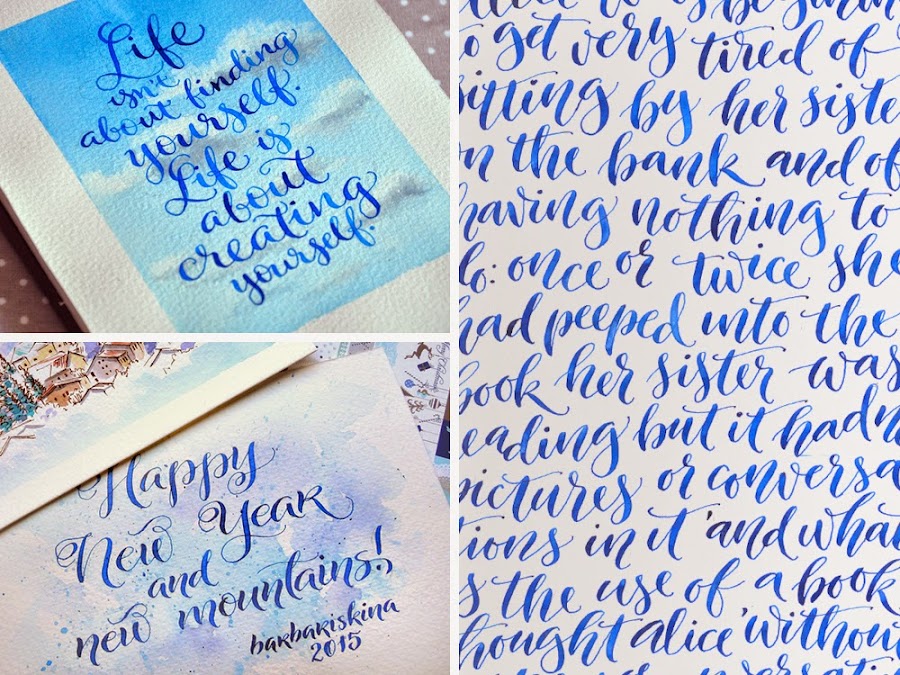 Life
isn't
about finding
yourself.
Life is
about
creating
yourself.
Happy
New Year
and
new mountains!
barbariskina
2015
to get very tired of
sitting by her siste
on the bank and of
having nothing to
do: once or twice she
had peeped into the
book her sister was
reading but it hadn
pictures or conversa
tions in it 'and what
is the use of a book
thought alice 'without